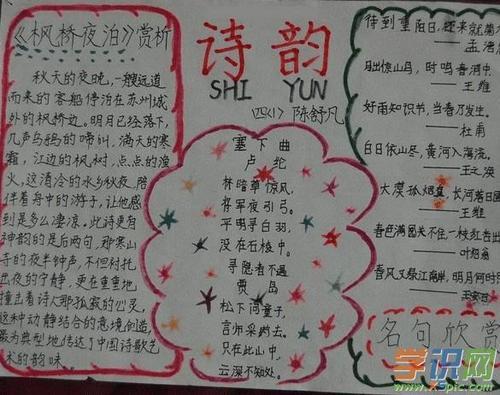 《枫桥夜泊》赏析
秋天的夜晚,一艘远道
而来的客船停泊在苏州城
外的枫桥边。明月已经落下,
几声乌鸦的啼叫,满天的寒
霜,江边的枫树,点点的渔
火,这清冷的水乡秋夜,陪
伴着舟中的游子,让他感
到是多么凄凉,此诗更有
神韵的是后两句,那寒山
寺的夜半钟声,不但衬托
出夜的宁静,更在重重地
撞击着诗人那孤寂的心灵,
这种动静结合的意境创造,
最为典型地传达了中国诗歌艺
术的韵味。
诗韵
SHI YUN
四(1) 陈舒凡
塞下曲
卢纶
林暗草惊风,
将军夜引弓。
平明寻白羽,
没在石棱中。
寻隐者不遇
贾岛
松下问童子,
言师采药去。
只在此山中,
云深不知处。
待到重阳日,还来就菊
——孟浩
月出惊山鸟,时鸣春涧中。
——王维
好雨知识节,当春乃发生。
——杜甫
白日依山尽,黄河入海流。
——王之涣
大漠孤烟直,长河落日圆
——王维
春色满园关不住,一枝红杏出
——叶绍翁
春风又绿江南岸,明月何时
——王安石
名句欣赏
学识网
www.xspic.com